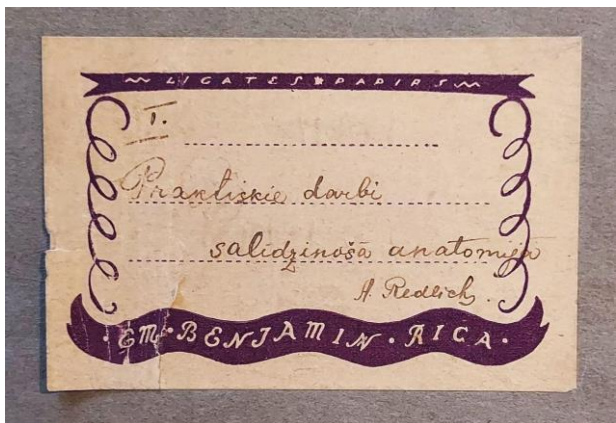 LIGATES PAPIRS
I.
Praktiskie darbi
salidzinošā anatomijā
A. Redlich.
EM. BENJAMIN. RIGA.